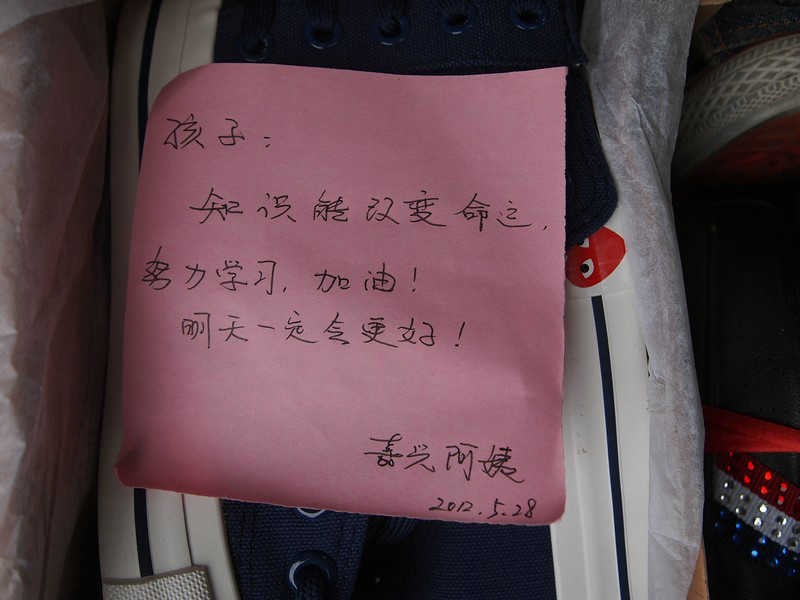 孩子：
知识能改变命运，
努力学习，加油！
明天一定会更好！
嘉兴阿姨
2012.5.28